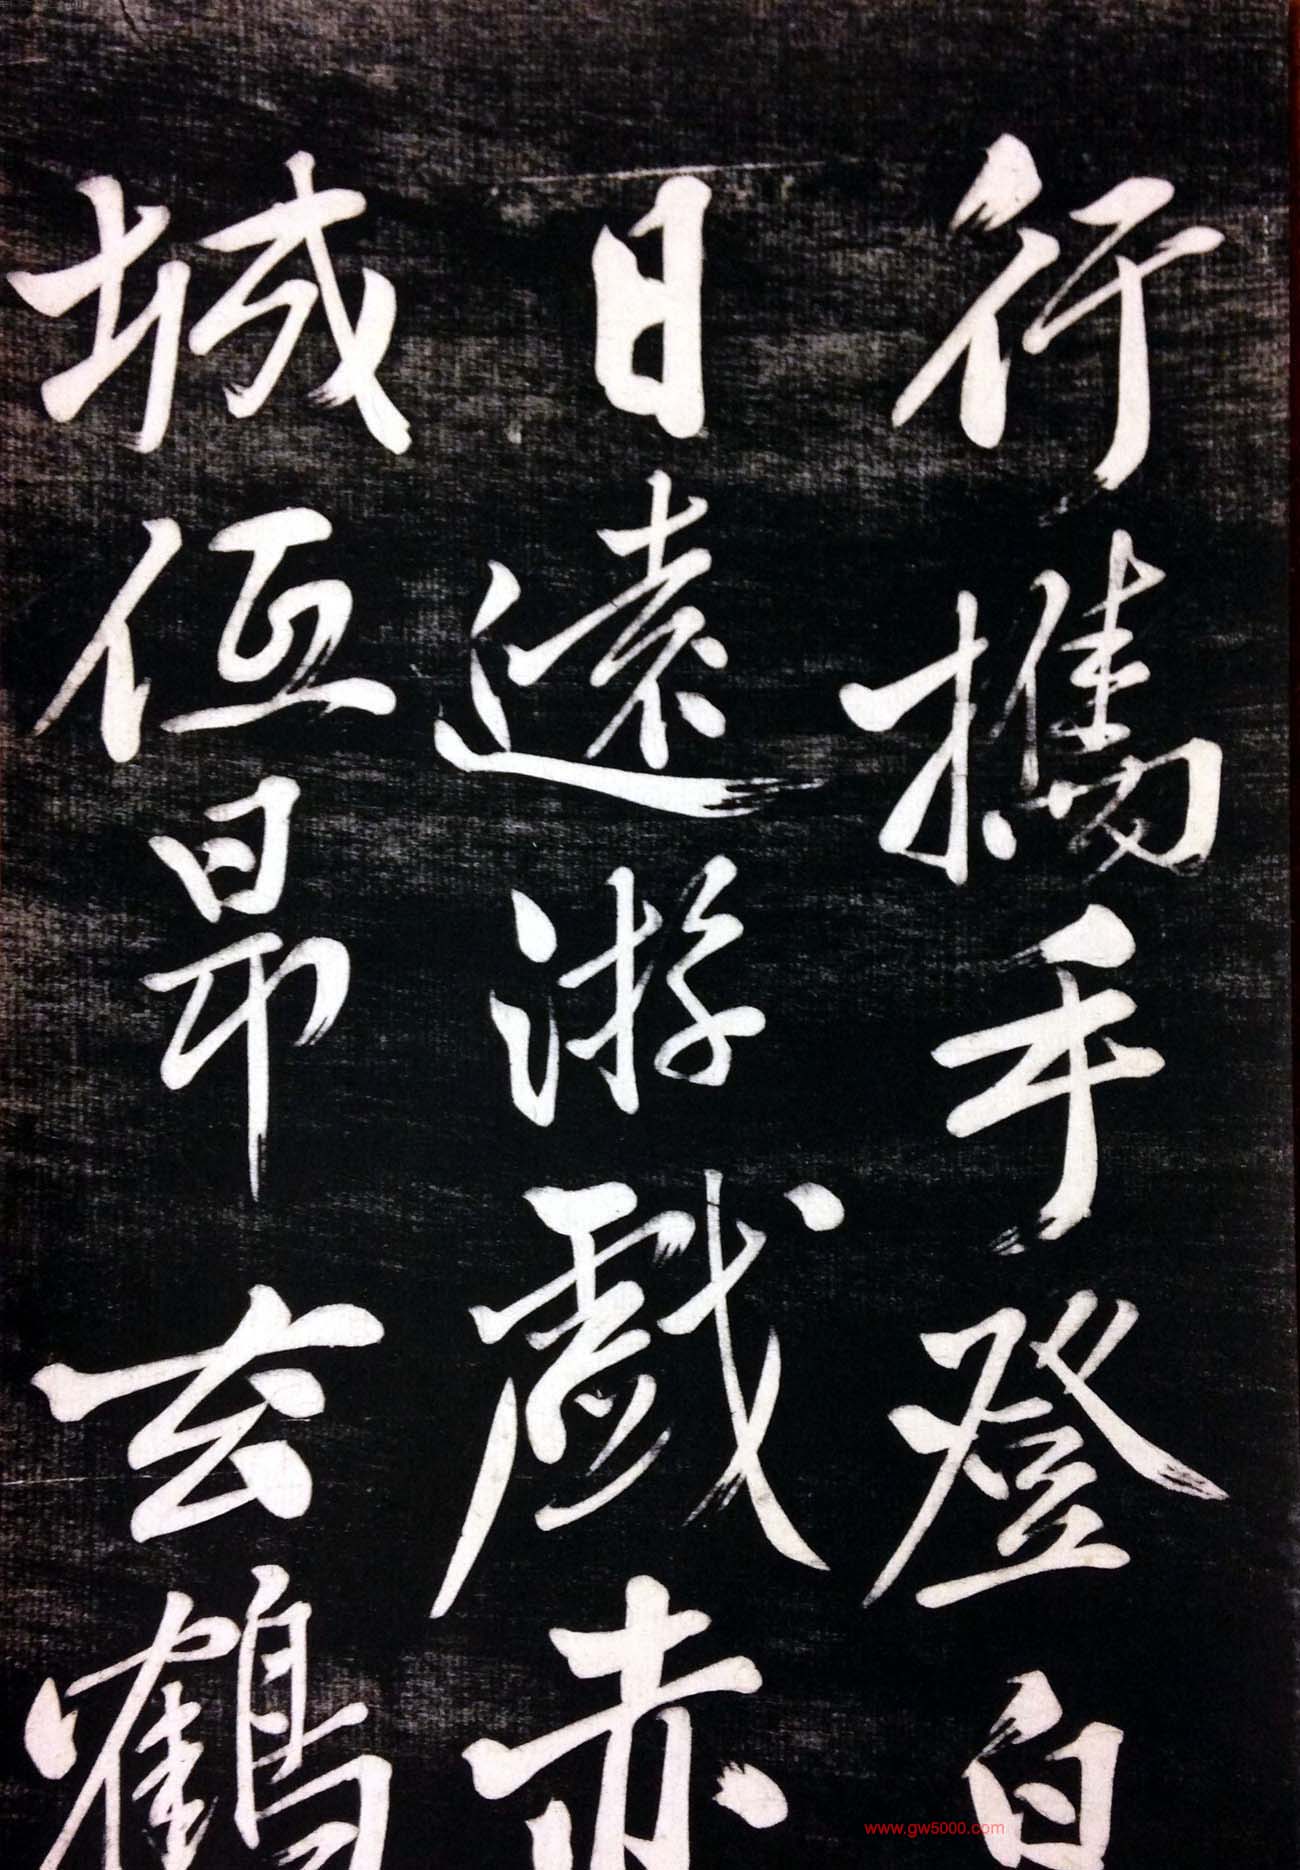 行携手登白
日遠游戲赤
城低昂玄鶴
www.gw5000.com